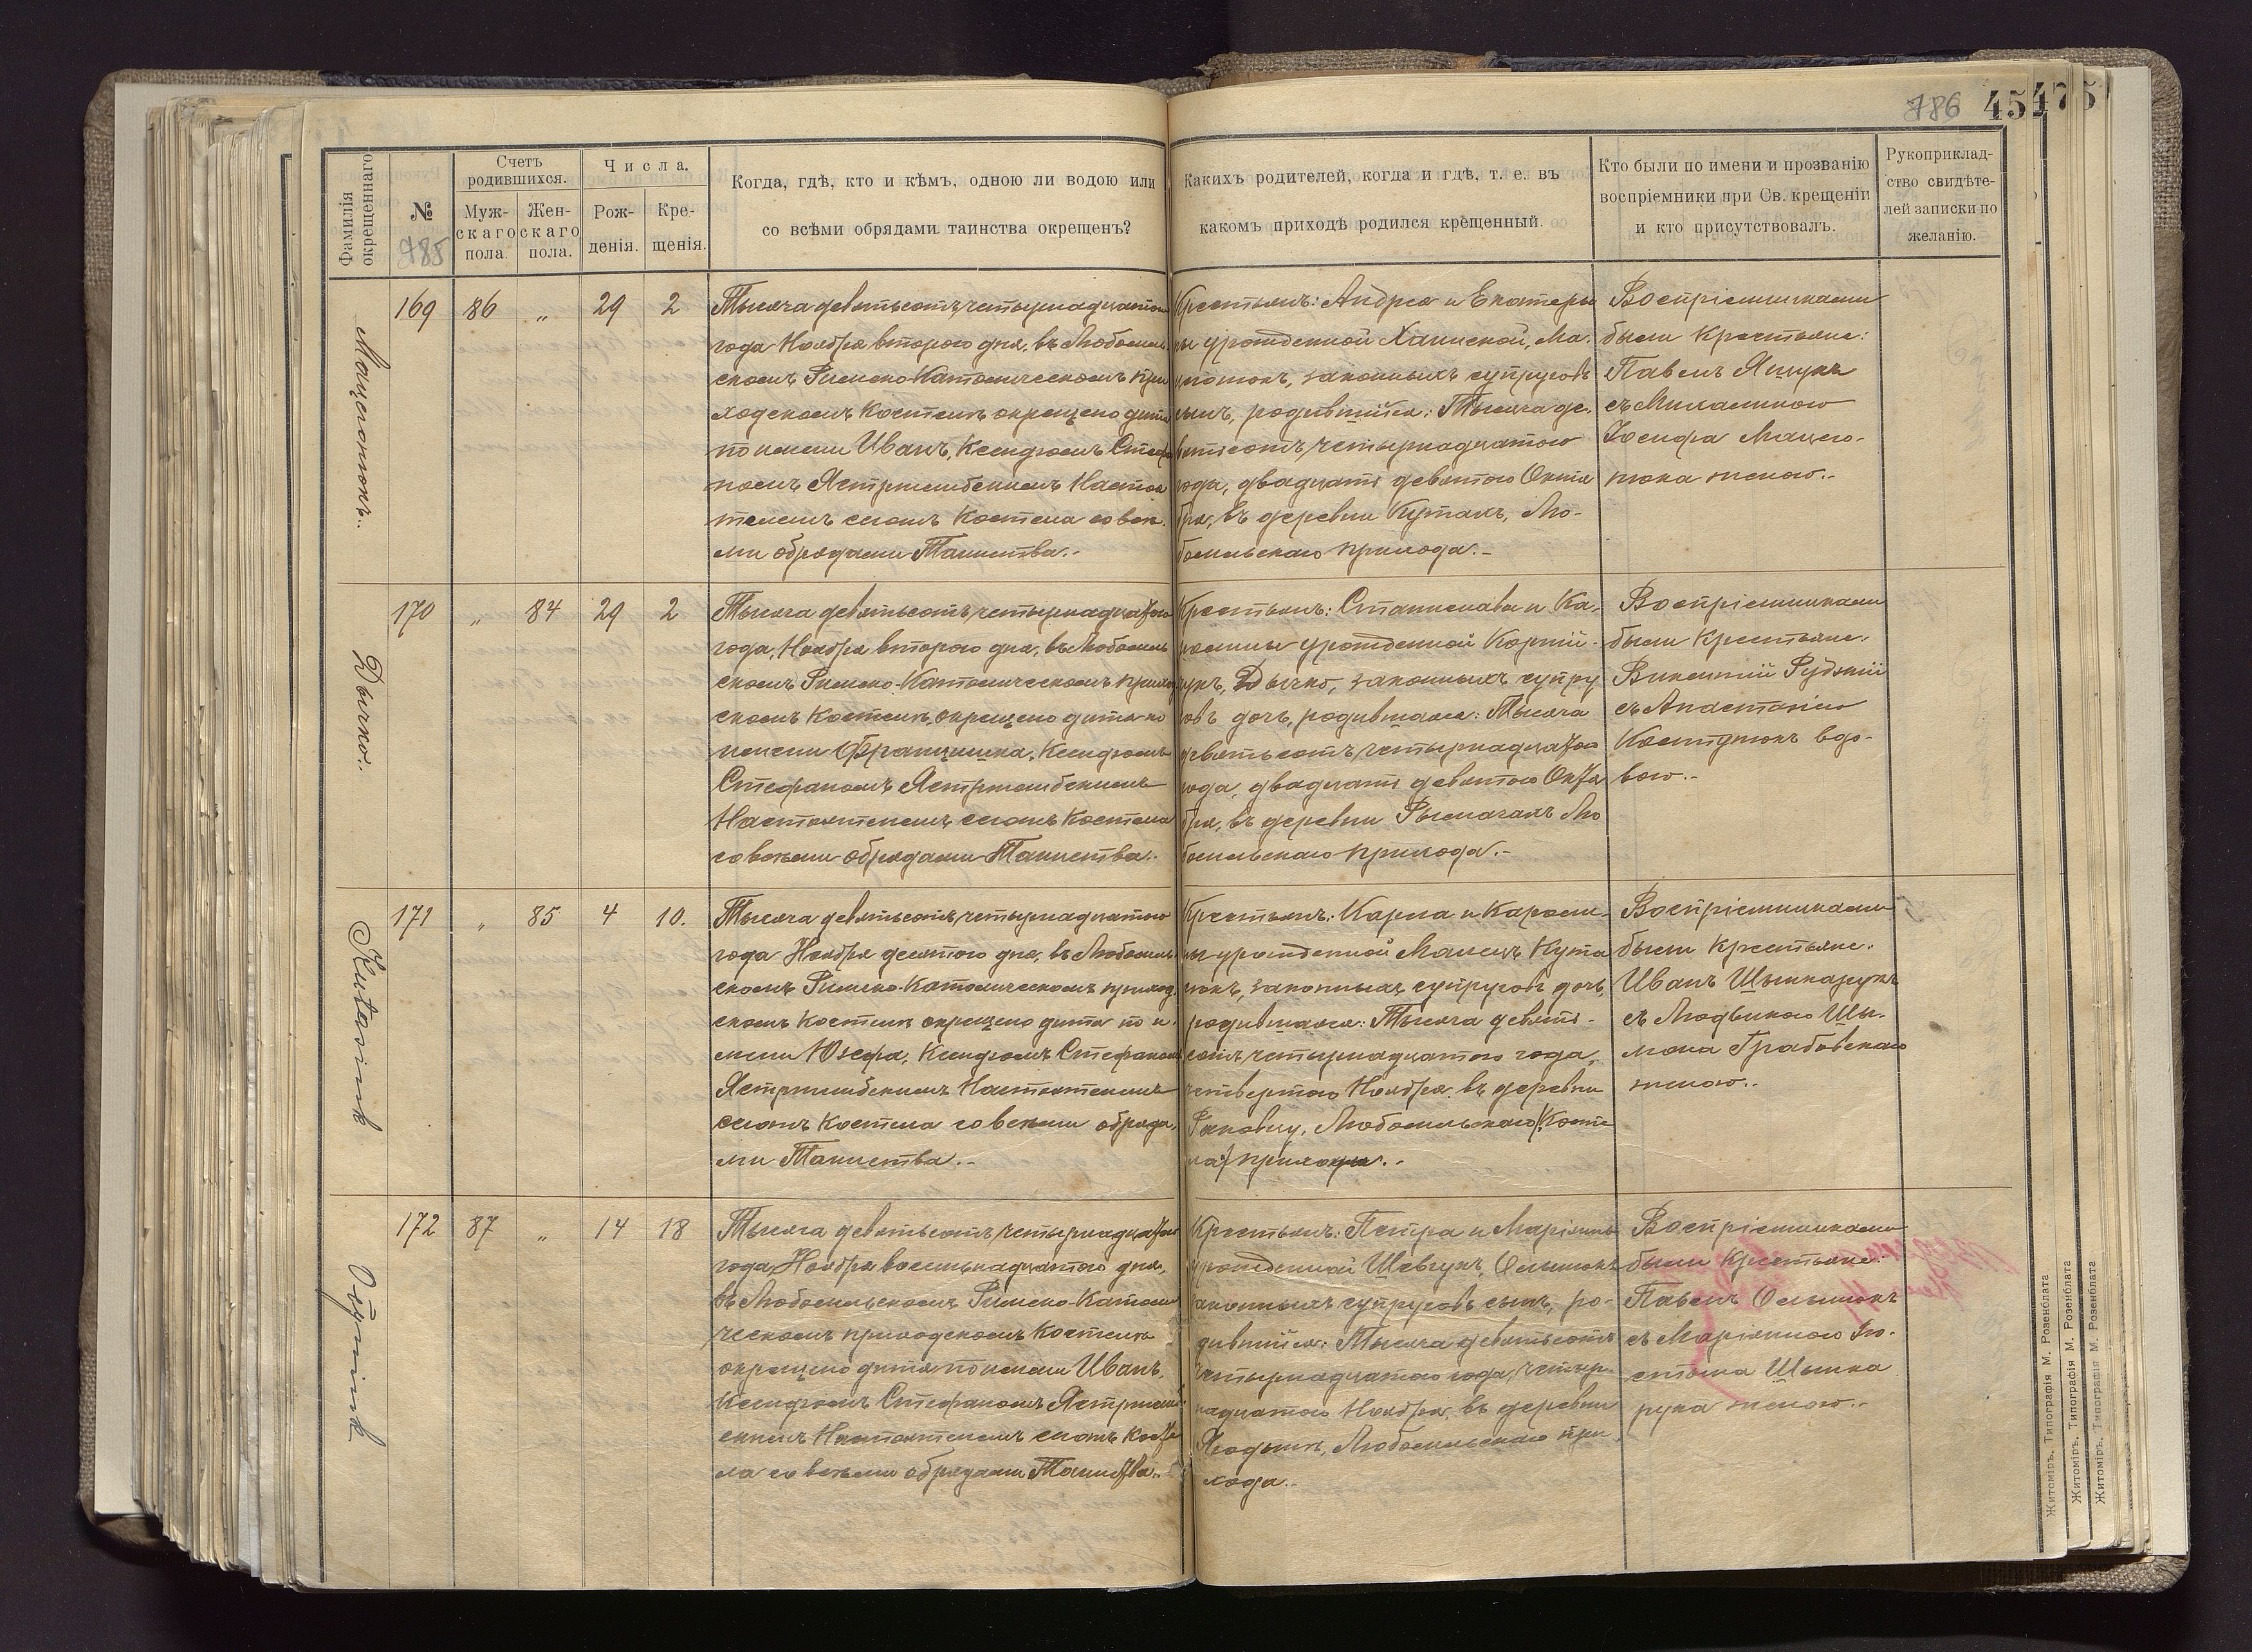 786 45 475
Фамилія окрещеннаго
№
785
Счетъ родившихся.
Мужскаго пола.
Женскаго пола.
Числа.
Рожденія.
Крещенія.
Когда, гдѣ, кто и кѣмъ, одною ли водою или
со всѣми обрядами таинства окрещенъ?
Какихъ родителей, когда и гдѣ, т. е. въ
какомъ приходѣ родился крещенный.
Кто были по имени и прозванію
воспріемники при Св. крещеніи
и кто присутствовалъ.
Рукоприклад-
ство свидѣте-
лей записки по
желанію.
Мацегонюкъ.
169 86 „ 29 2
Тысяча девятьсотъ четырнадцатого
года Ноября второго дня, въ Любомль-
скомъ Римско-Католическомъ при
ходскомъ Костелѣ окрещено дитя
по имени Иванъ, Ксендзомъ Стефа
номъ Ястржембскимъ Настоя
телемъ сегожъ Костела со всѣ-
ми обрядами Таинства.-
Крестьянъ: Андрея и Екатери
ны урожденной
законныхъ супруговъ
сынъ, родившійся: Тысяча де-
вятьсотъ четырнадцатого
года, двадцать девятого Октя
бря, въ деревни Кутахъ, Лю-
бомльскаго прихода.-
Воспріемниками
были Крестьяне:
Павелъ Ящукъ
съ Михалиною
Іосифа Мацего-
нюка женою.-
Дычко.
170 „ 84 29 2
Тысяча девятьсотъ четырнадцатого
года, Ноября второго дня, въ Любомль
скомъ Римско-Католическомъ приход
скомъ Костелѣ, окрещено дитя по
имени Францишка, Ксендзомъ
Стефаномъ Ястржембскимъ
Настоятелемъ сегожъ Костела
со всѣми обрядами Таинства.-
Крестьянъ: Станислава и Ка-
ролины урожденной Корній-
чукъ, Дычко, законныхъ супру
говъ дочь, родившаяся: Тысяча
девятьсотъ четырнадцатого
года, двадцать девятого Октя
бря, въ деревни Рымачахъ Лю
бомльскаго прихода.-
Воспріемниками
были Крестьяне:
Викентій Рудзкій
съ Анастасіею
вдо-
вою.-
Kutasiuk
171 „ 85 4 10.
Тысяча девятьсотъ четырнадцатого
года Ноября десятого дня, въ Любомль-
скомъ Римско-Католическомъ приход-
скомъ Костелѣ окрещено дитя по и-
мени Юзефа, Ксендзомъ Стефаномъ
Ястржембскимъ Настоятелемъ
сегожъ Костела со всѣми обряда-
ми Таинства.-
Крестьянъ: Карла и Кароли-
ны урожденной Малецъ Кута
сюкъ, законныхъ супруговъ дочь,
родившаяся: Тысяча девять-
сотъ четырнадцатого года,
четвертого Ноября, въ деревни
Любомльскаго /Косте
ла/ прихода.-
Воспріемниками
были Крестьяне:
Иванъ Шинкарукъ
съ Людвикою Шы-
мона Грабовскаго
женою.-
172 87 „ 14 18
Тысяча девятьсотъ четырнадцатого
года, Ноября восемьнадцатого дня,
въ Любомльскомъ Римско-Католи
ческомъ приходскомъ Костелѣ
окрещено дитя по имени Иванъ,
Ксендзомъ Стефаномъ Ястржемб-
скимъ Настоятелемъ сегожъ Косте
ла со всѣми обрядами Таинства.-
Крестьянъ: Петра и Маріянны
урожденной Шевчукъ,
законныхъ супруговъ сынъ, ро-
дившійся: Тысяча девятьсотъ
четырнадцатого года, четыр-
надцатого Ноября, въ деревни
Ягодынѣ, Любомльскаго при-
хода.-
Воспріемниками
были Крестьяне:
Павелъ
съ Маріянною
Шинка
рука женою.-
Житоміръ, Типографія М. Розенблата
Житоміръ, Типографія М. Розенблата
Житоміръ, Типографія М. Розенблата